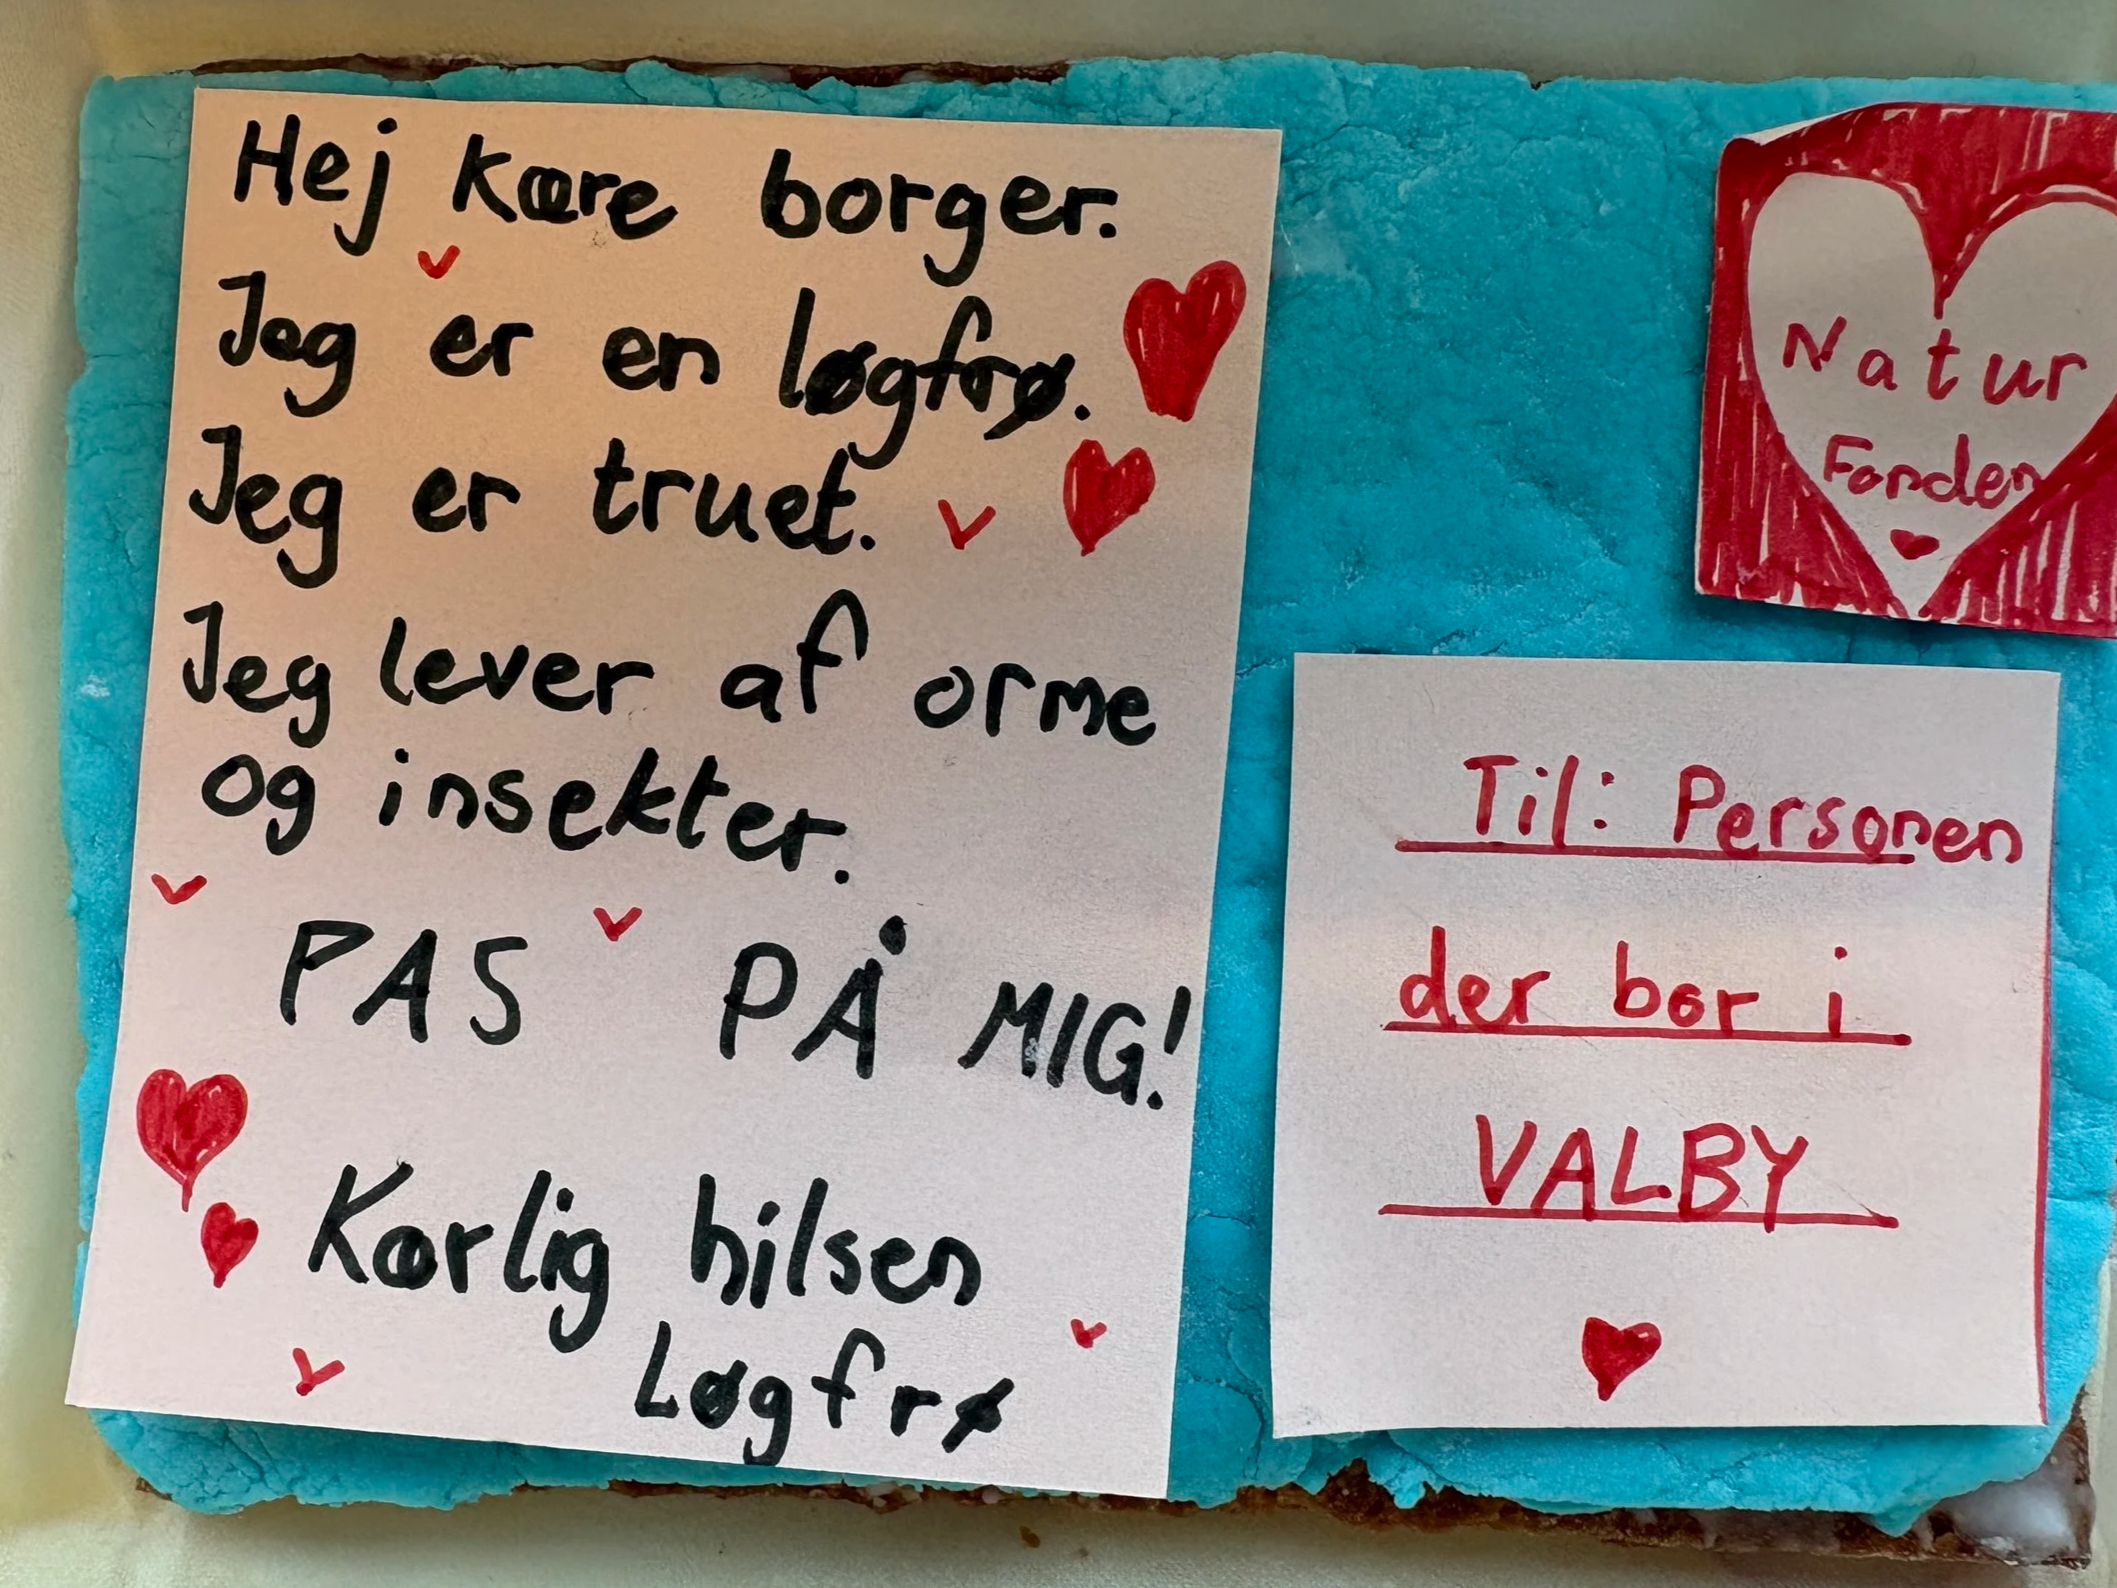 Hej kære borger.
Jeg er en løgfrø.
Jeg er truet.
Jeg lever af orme
og insekter.
PAS PÅ MIG!
Kærlig hilsen
Løgfrø
Natur
Fonden
Til: Personen
der bor i
VALBY